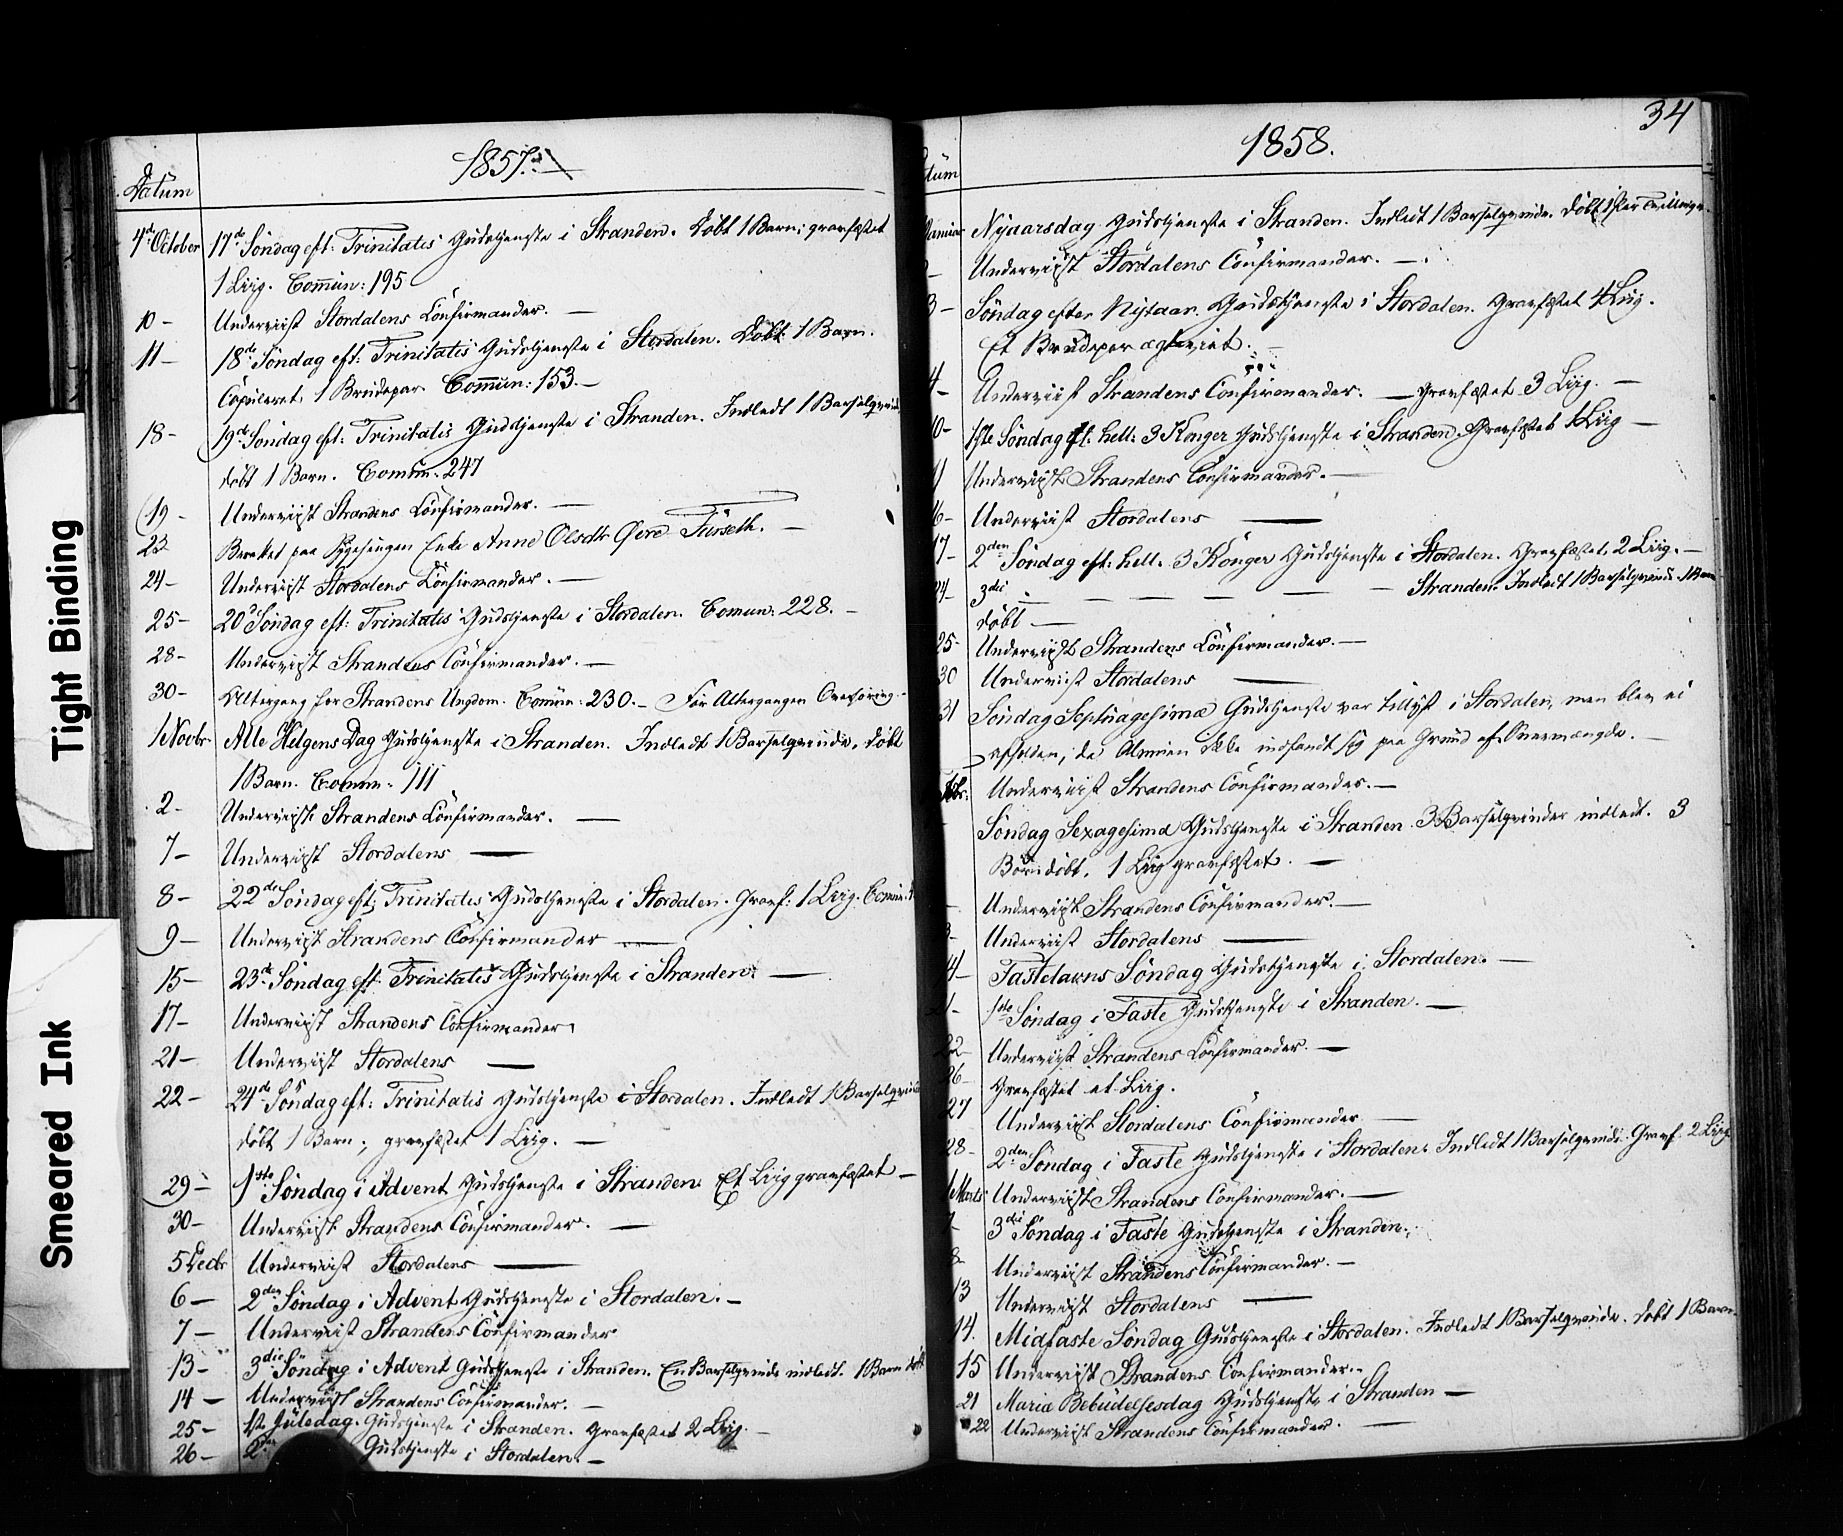 Tight Binding
Smeared Ink
1857.
Datum
4d October 17de Søndag eft: Trinitatis Gudstjeneste i Stranden. Døbt 1 Barn; gravfæstet
1 Liig. Commun: 195
10 - Underviist Stordalens Confirmander. —
11 - 18de Søndag eft: Trinitatis Gudstjeneste i Stordalen. Døbt 1 Barn.
Copuleret 1 Brudepar. Commun: 153. —
18 - 19de Søndag eft: Trinitatis Gudstjeneste i Stranden. Indledt 1 Barselqvinde,
døbt 1 Barn. Commun: 247
19 - Underviist Strandens Confirmander. —
23 Berettet paa Sygesengen Enke Anne Olsdtr Øvre Furseth. —
24 - Underviist Stordalens Confirmander. —
25 - 20d Søndag eft: Trinitatis Gudstjeneste i Stordalen. Comun: 228. —
28 - Underviist Strandens Confirmander. —
30 - Altergang for Strandens Ungdom. Comun: 230. — Før Altergangen Overhøring. -
1 Novbr. Alle Helgens Dag Gudstjeneste i Stranden. Indledt 1 Barselqvinde, døbt
1 Barn. Commun: 111
2 - Underviist Strandens Confirmander. —
7 - Underviist Stordalens —
8 - 22de Søndag eft: Trinitatis Gudstjeneste i Stordalen. Gravf: 1 Liig. Comun:
9 - Underviist Strandens Confirmander —
15 - 23de Søndag eft: Trinitatis Gudstjeneste i Stranden. —
17 - Underviist Strandens Confirmander.
21 - Underviist Stordalens —
22 - 24de Søndag eft: Trinitatis Gudstjeneste i Stordalen. Indledt 1 Barselqvinde
døbt 1 Barn; gravfæstet 1 Liig. —
29 - 1ste Søndag i Advent Gudstjeneste i Stranden. Et Liig gravfæstet —
30 - Underviist Strandens Confirmander. —
5 Decbr Underviist Stordalens —
6 - 2den Søndag i Advent Gudstjeneste i Stordalen. —
7 - Underviist Strandens Confirmander
13 - 3die Søndag i Advent Gudstjeneste i Stranden. En Barselqvinde indledt. 1 Barn døbt
14 - Underviist Strandens Confirmander. —
25 - 1ste Juledag. Gudstjeneste i Stranden. Gravfæstet 2 Liig. —
26 - 2den Gudstjeneste i Stordalen. —
34
1858.
tum
Januar Nyaarsdag Gudstjeneste i Stranden. Indledt 1 Barselqvinde. Døbt
- Underviist Stordalens Confirmander. —
3 - Søndag efter Nytaar Gudstjeneste i Stordalen. Gravfæstet 4 Liig.
Et Brudepar ægteviet. —
4 - Underviist Strandens Confirmander. — Gravfæstet 3 Liig. —
0 - 1ste Søndag ef: hell: 3 Konger Gudstjeneste i Stranden. Gravfæstet 1 Liig —
1 Underviist Strandens Confirmander. —
6 - Underviist Stordalens —
17 - 2den Søndag eft: hell: 3 Konger Gudstjeneste i Stordalen. Gravfæstet 2 Liig. —
24 - 3die — — — — — — Stranden. Indledt 1 Barselqvinde. 1 Barn
døbt —
25 - Underviist Strandens Confirmander. —
30 Underviist Stordalens —
31 Søndag Septuagesima Gudstjeneste var tillyst i Stordalen, men blev ei
afholden, da Almuen ikke indfandt sig paa Grund af Sneemængde. —
Febr: Underviist Strandens Confirmander. —
Søndag Sexagesima Gudstjeneste i Stranden. 3 Barselqvinder indledt. 3
Børn døbt. 1 Liig gravfæstet. —
- Underviist Strandens Confirmander. —
3 - Underviist Stordalens —
4 - Fastelavns Søndag Gudstjeneste i Stordalen. —
1 - 1ste Søndag i Faste Gudstjeneste i Stranden. —
22 - Underviist Strandens Confirmander. —
26 - Gravfæstet et Liig.
27 Underviist Stordalens Confirmander —
28 - 2den Søndag i Faste Gudstjeneste i Stordalen. Indledt 1 Barselqvinde. Gravf. 2 Liig
1 Marts Underviist Strandens Confirmander. —
7 - 3die Søndag i Faste Gudstjeneste i Stranden.
8 Underviist Strandens Confirmander. —
13 Underviist Stordalens —
14. Midfaste Søndag Gudstjeneste i Stordalen. Indledt 1 Barselqvinde. Døbt 1 Barn.
15 Underviist Strandens Confirmander. -
21 Mariæ Bebudelsesdag Gudstjeneste i Stranden —
22 Underviist Strandens Confirmander. —